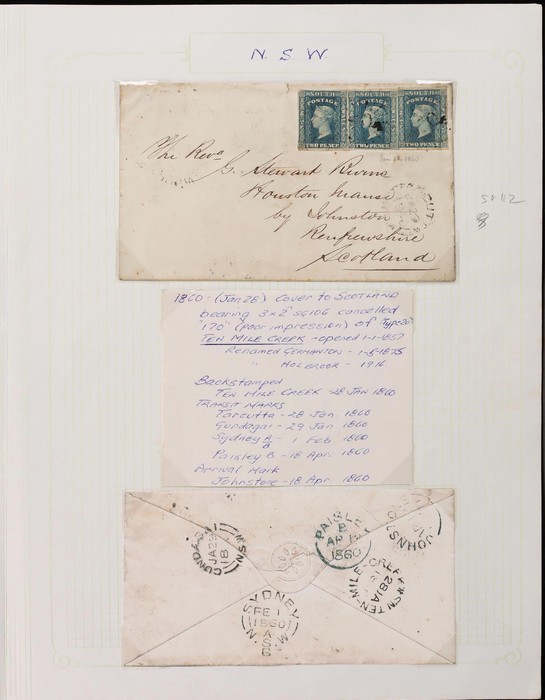 N. S. W.
SOUTH SOUTH SOUTH
POSTAGE POSTAGE POSTAGE
TWO PENCE TWO PENCE TWO PENCE
The Revd
G. Stewart Burns
Houston Manse
by Johnston
Renfrewshire
Scotland
1860 - (Jan 28) Cover to SCOTLAND
bearing 3 x 2d SG106 cancelled
"170" (poor impression) of Type
TEN MILE CREEK - opened 1-1-1857
Renamed GERMANTON - 1-5-1875
" HOLBROOK - 1916
Backstamped
TEN MILE CREEK - 28 JAN 1860
TRANSIT MARKS
Tarcutta - 28 Jan 1860
Gundagai - 29 Jan 1860
Sydney - 1 Feb 1860
Paisley B - 18 Apr. 1860
Arrival Mark
Johnstone - 18 Apr 1860
GUNDAGAI N.S.W
JA 29
PAISLEY
B
AP 18
1860
JOHNS
TEN-MILE-CREEK N.S.W
28 JA
SYDNEY
FE 1
1860
N.S.W